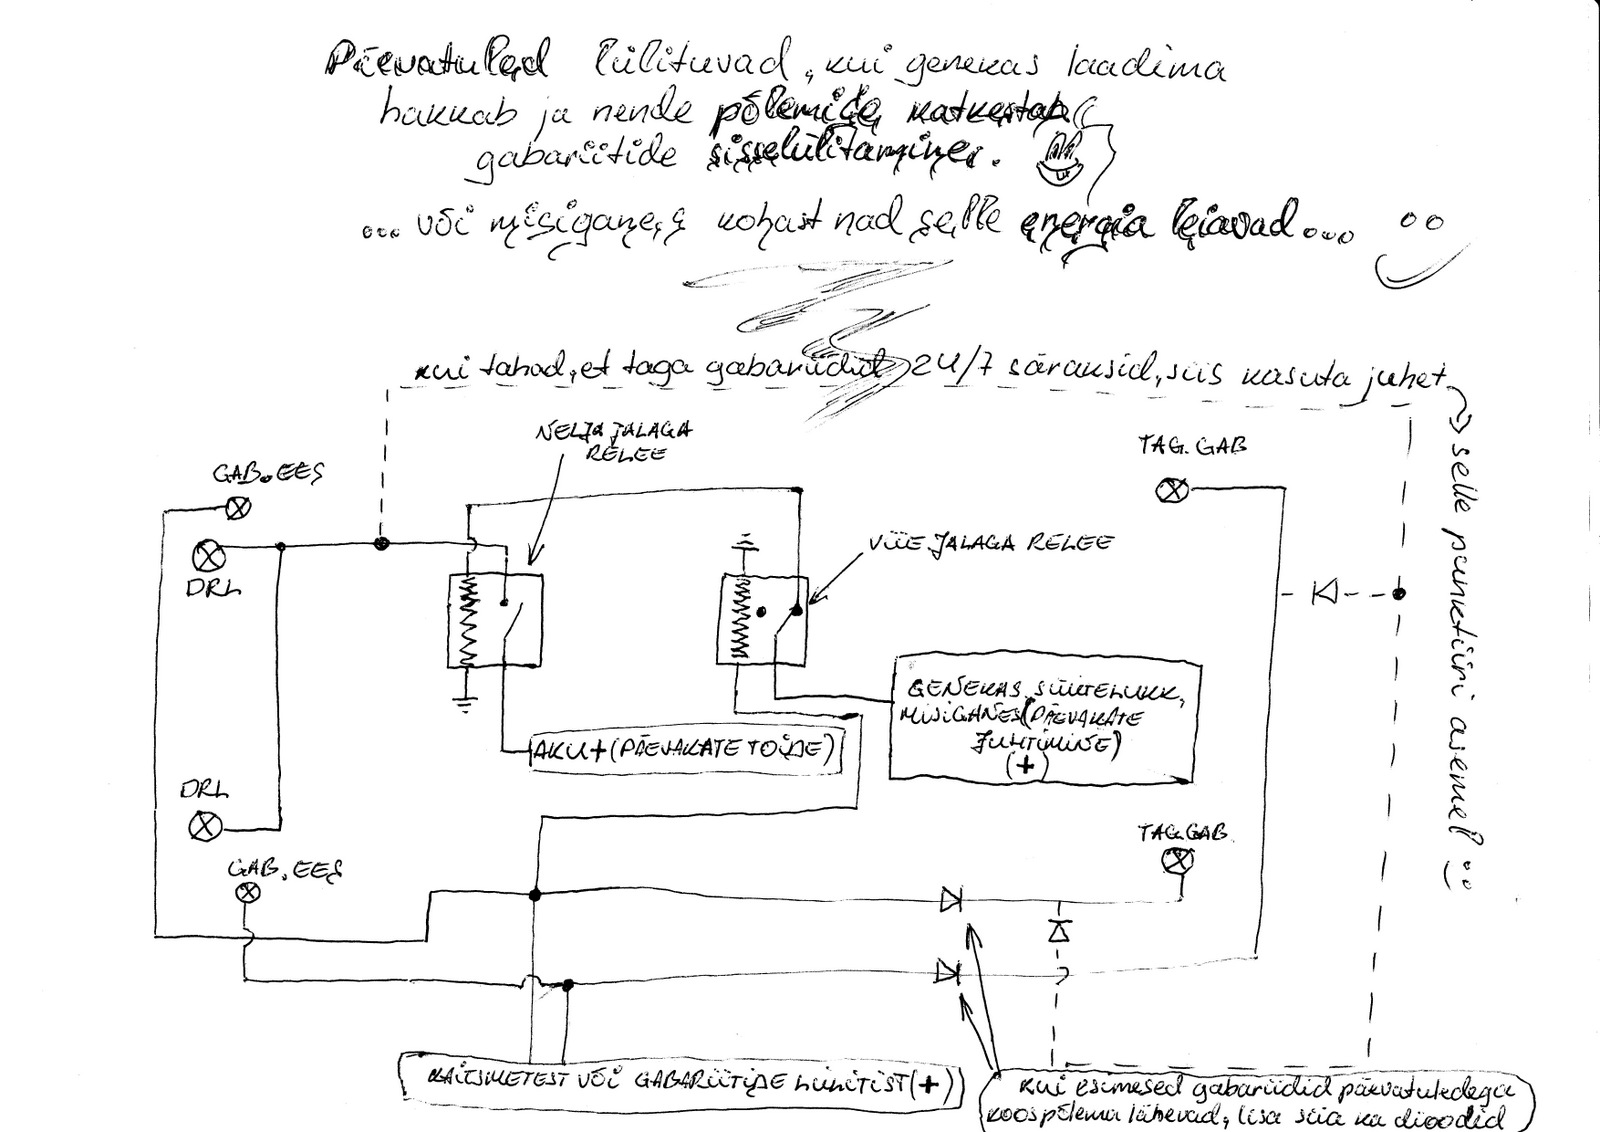 Päevatuled lülituvad, kui genekas laadima
hakkab ja nende põlemide katkestab
gabariitide sisselülitamine.
... või misiganes kohast nad selle energia leiavad...
kui tahad, et taga gabariidid 24/7 säraksid, siis kasuta juhet
selle punktiiri asemel
NELJA JALAGA
RELEE
TAG. GAB
GAB. EES
VIIE JALAGA RELEE
DRL
GENEKAS, SÜÜTELUKK,
MISIGANES (PÄEVAKATE
JUHTIMINE)
(+)
AKU + (PÄEVAKATE TOIDE)
DRL
TAG. GAB.
GAB. EES
KAITSMETEST VÕI GABARIITIDE LÜLITIST (+)
kui esimesed gabariidid päevatuledega
koos põlema lähevad, lisa siia ka dioodid